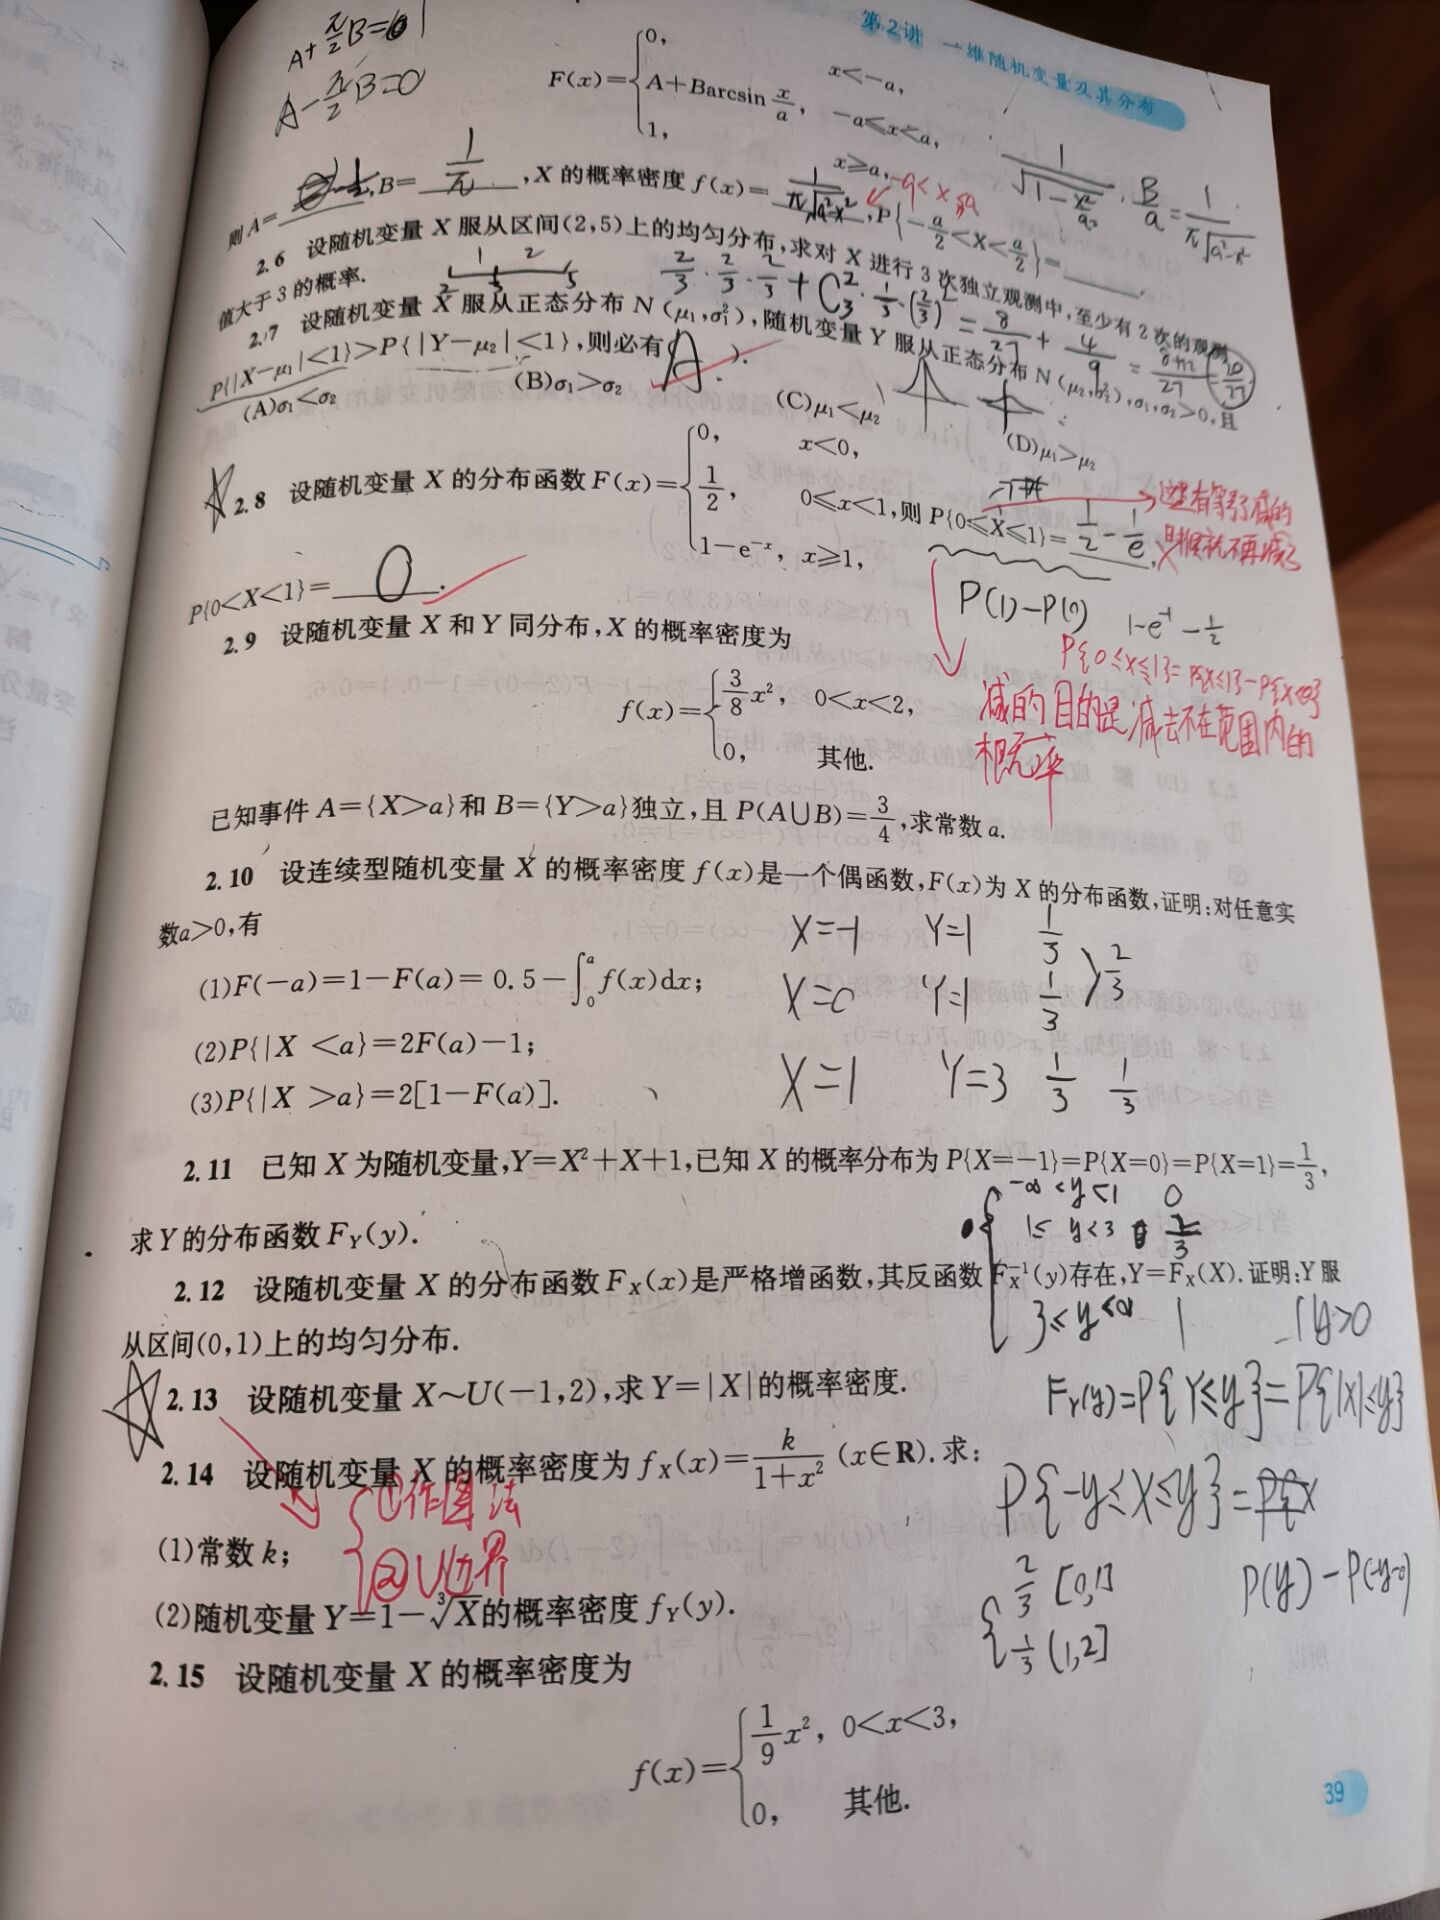 第2讲 一维随机变量及其分布
A+π/2 B=1
A-π/2 B=0
F(x)={0, x<-a,
A+Barcsin x/a, -a≤x<a,
1, x≥a,
1/√(1-x²/a²) · B/a = 1/(π√(a²-x²))
则 A=1/2, B=1/π, X 的概率密度 f(x)=1/(π√(a²-x²)), P{-a/2<X<a/2}=____.
2.6 设随机变量 X 服从区间(2,5)上的均匀分布,求对 X 进行 3 次独立观测中,至少有 2 次的观测
值大于 3 的概率.
1 2
2 3 5
2/3 · 2/3 · 2/3 + C₃² · 1/3 · (2/3)² = 8/27 + 4/9 = 8+12/27 = 20/27
2.7 设随机变量 X 服从正态分布 N(μ₁,σ₁²),随机变量 Y 服从正态分布 N(μ₂,σ₂²),σ₁,σ₂>0,且
P{|X-μ₁|<1}>P{|Y-μ₂|<1},则必有( A ).
(A)σ₁<σ₂ (B)σ₁>σ₂ (C)μ₁<μ₂ (D)μ₁>μ₂
2.8 设随机变量 X 的分布函数 F(x)={0, x<0,
1/2, 0≤x<1,则 P{0≤X≤1}=1/2-1/e,
1-e⁻ˣ, x≥1,
这里有等号了减的
时候就不再减了
P{0<X<1}= 0 .
P(1)-P(0) 1-e⁻¹-1/2
P{0≤x≤1}=P{x≤1}-P{x<0}
减的目的是减去不在范围内的
概率
2.9 设随机变量 X 和 Y 同分布,X 的概率密度为
f(x)={3/8 x², 0<x<2,
0, 其他.
已知事件 A={X>a}和 B={Y>a}独立,且 P(A∪B)=3/4,求常数 a.
2.10 设连续型随机变量 X 的概率密度 f(x)是一个偶函数,F(x)为 X 的分布函数,证明:对任意实
数a>0,有
(1)F(-a)=1-F(a)=0.5-∫₀ᵃ f(x)dx;
(2)P{|X <a}=2F(a)-1;
(3)P{|X >a}=2[1-F(a)].
X=-1 Y=1 1/3
X=0 Y=1 1/3 } 2/3
X=1 Y=3 1/3 1/3
2.11 已知 X 为随机变量,Y=X²+X+1,已知 X 的概率分布为 P{X=-1}=P{X=0}=P{X=1}=1/3,
求 Y 的分布函数 F_Y(y).
-∞<y<1 0
1≤y<3 2/3
3≤y<∞ 1
2.12 设随机变量 X 的分布函数 F_X(x)是严格增函数,其反函数 F_X⁻¹(y)存在,Y=F_X(X).证明:Y 服
从区间(0,1)上的均匀分布.
y>0
2.13 设随机变量 X~U(-1,2),求 Y=|X|的概率密度.
F_Y(y)=P{Y≤y}=P{|X|≤y}
P{-y≤X≤y}=P{X
P(y)-P(-y-0)
{2/3 [0,1]
1/3 (1,2]
①作图法
②U边界
2.14 设随机变量 X 的概率密度为 f_X(x)=k/(1+x²) (x∈R).求:
(1)常数 k;
(2)随机变量 Y=1-∛X的概率密度 f_Y(y).
2.15 设随机变量 X 的概率密度为
f(x)={1/9 x², 0<x<3,
0, 其他.
39